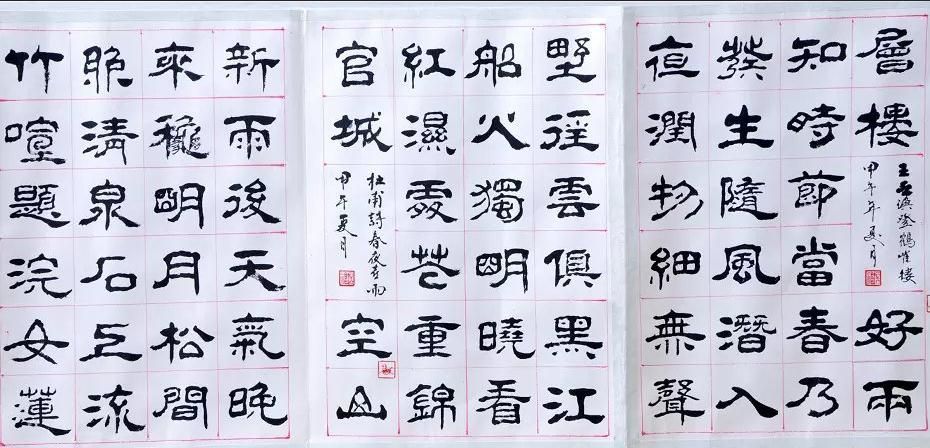 層樓
王之渙登鸛雀樓
甲午年夏月
好雨
知時節當春乃
發生隨風潛入
夜潤物細無聲
野徑雲俱黑江
船火獨明曉看
紅濕處花重錦
官城
杜甫詩春夜喜雨
甲午夏月
空山
新雨後天氣晚
來龝明月松間
照清泉石上流
竹喧歸浣女蓮